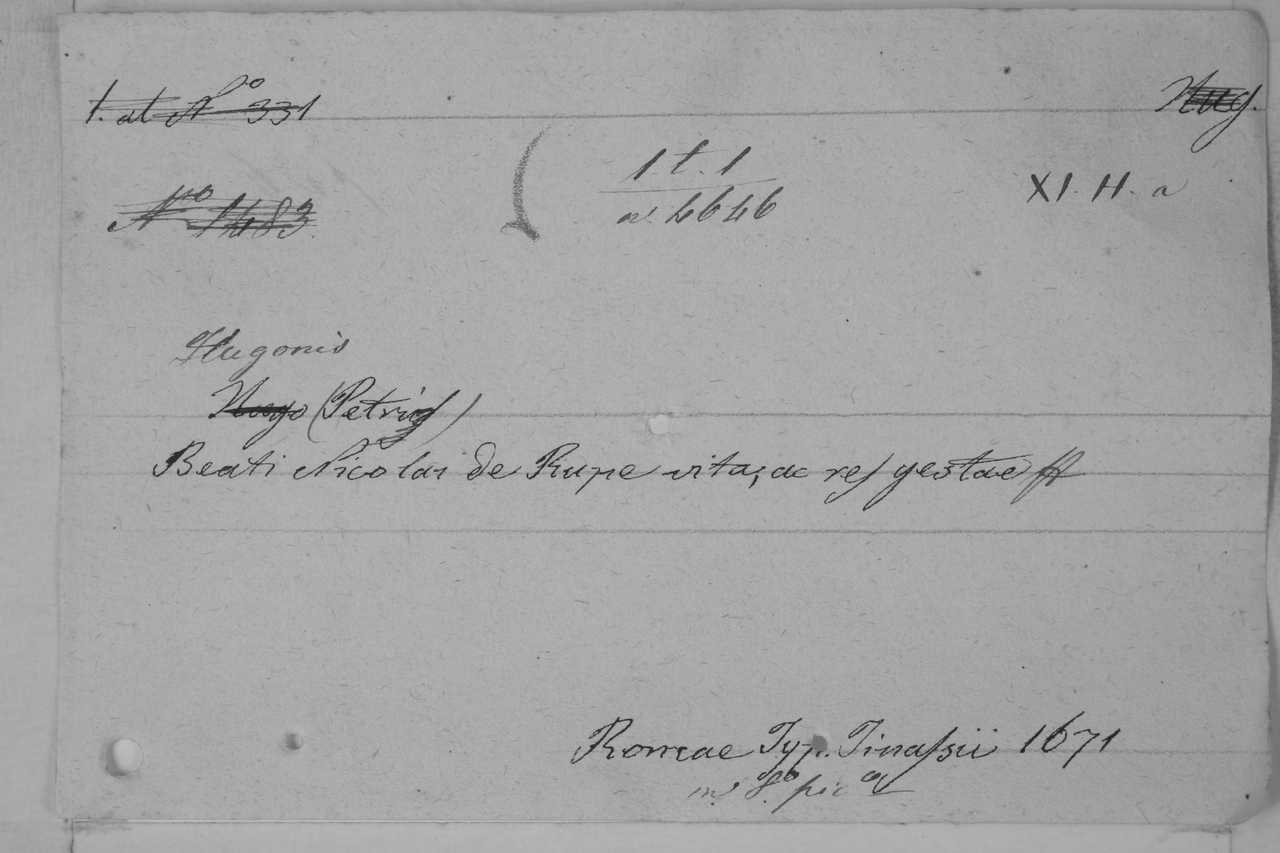 1. at Nº 331
Hug.
1 t. 1
XI. H. a
n. 4646
Nº 1483
Hugonis
Hugo (Petri)
Beati Nicolai de Rupe vita, ac res gestae
Romae Typ. Tinassii 1671
in 8º